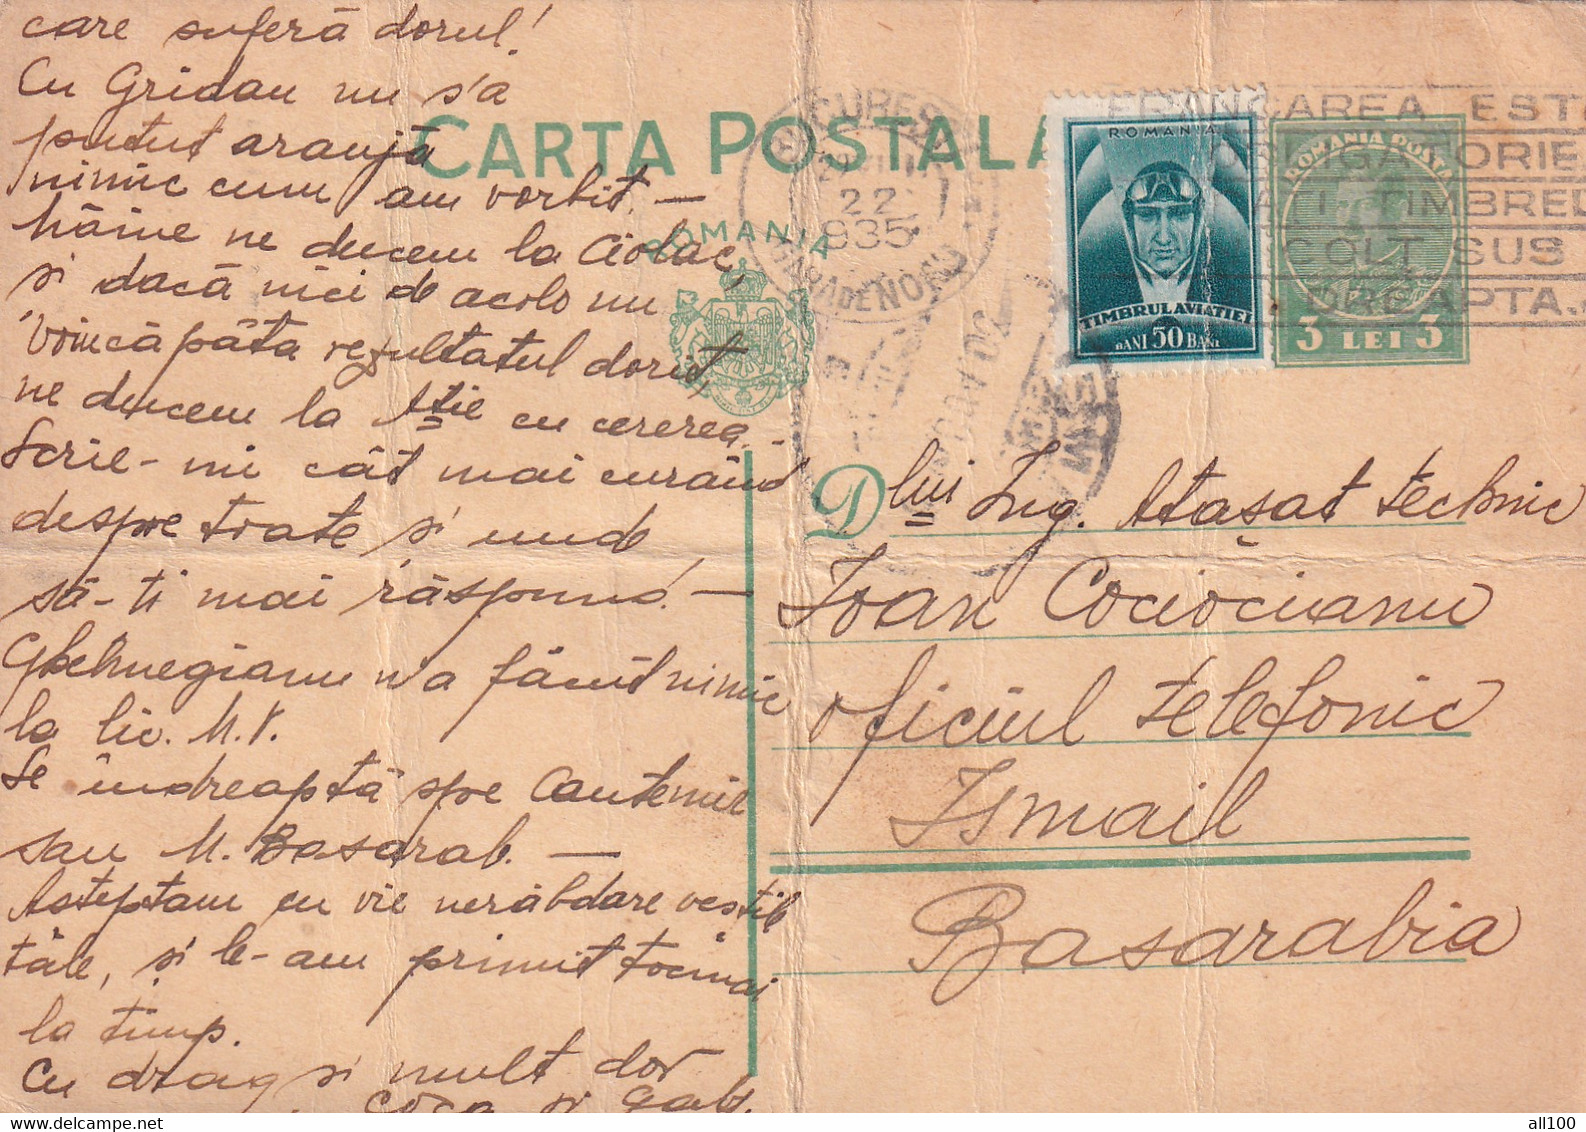 care suferă dorul!
Cu Gridan nu s'a
putut aranja
nimic cum am vorbit. —
Mâine ne ducem la Ciolac,
și dacă nici de acolo nu
voiu căpăta rezultatul dorit,
ne ducem la Mtie cu cererea. -
Scrie-mi cât mai curând
despre toate și unde
să-ți mai răspund. —
n'a făcut nimic
la lic. M.V.
Se îndreaptă spre Cantemir
sau M. Basarab. —
Așteptam cu vie nerăbdare veștile
tale, și le-am primit tocmai
la timp.
Cu drag și mult dor
Coca și Gab.
CARTA POSTALA
ROMANIA
BUCUREȘTI
22
935
GARA DE NORD
ROMANIA
TIMBRUL AVIATIEI
BANI 50 BANI
ROMANIA POSTA
3 LEI 3
FRANCAREA ESTE
OBLIGATORIE
TIMBRELE
COLT SUS
DREAPTA.
Dlui Ing. Atașat technic
Ioan Cociocianu
oficiul telefonic
Ismail
Basarabia
all100